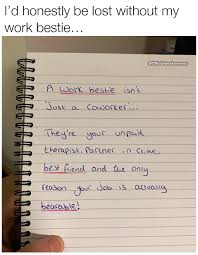 I'd honestly be lost without my
work bestie...
A work bestie isn't
'Just a coworker'...
They're your unpaid
therapist, Partner in Crime,
best friend and the only
reason your job is actually
bearable!